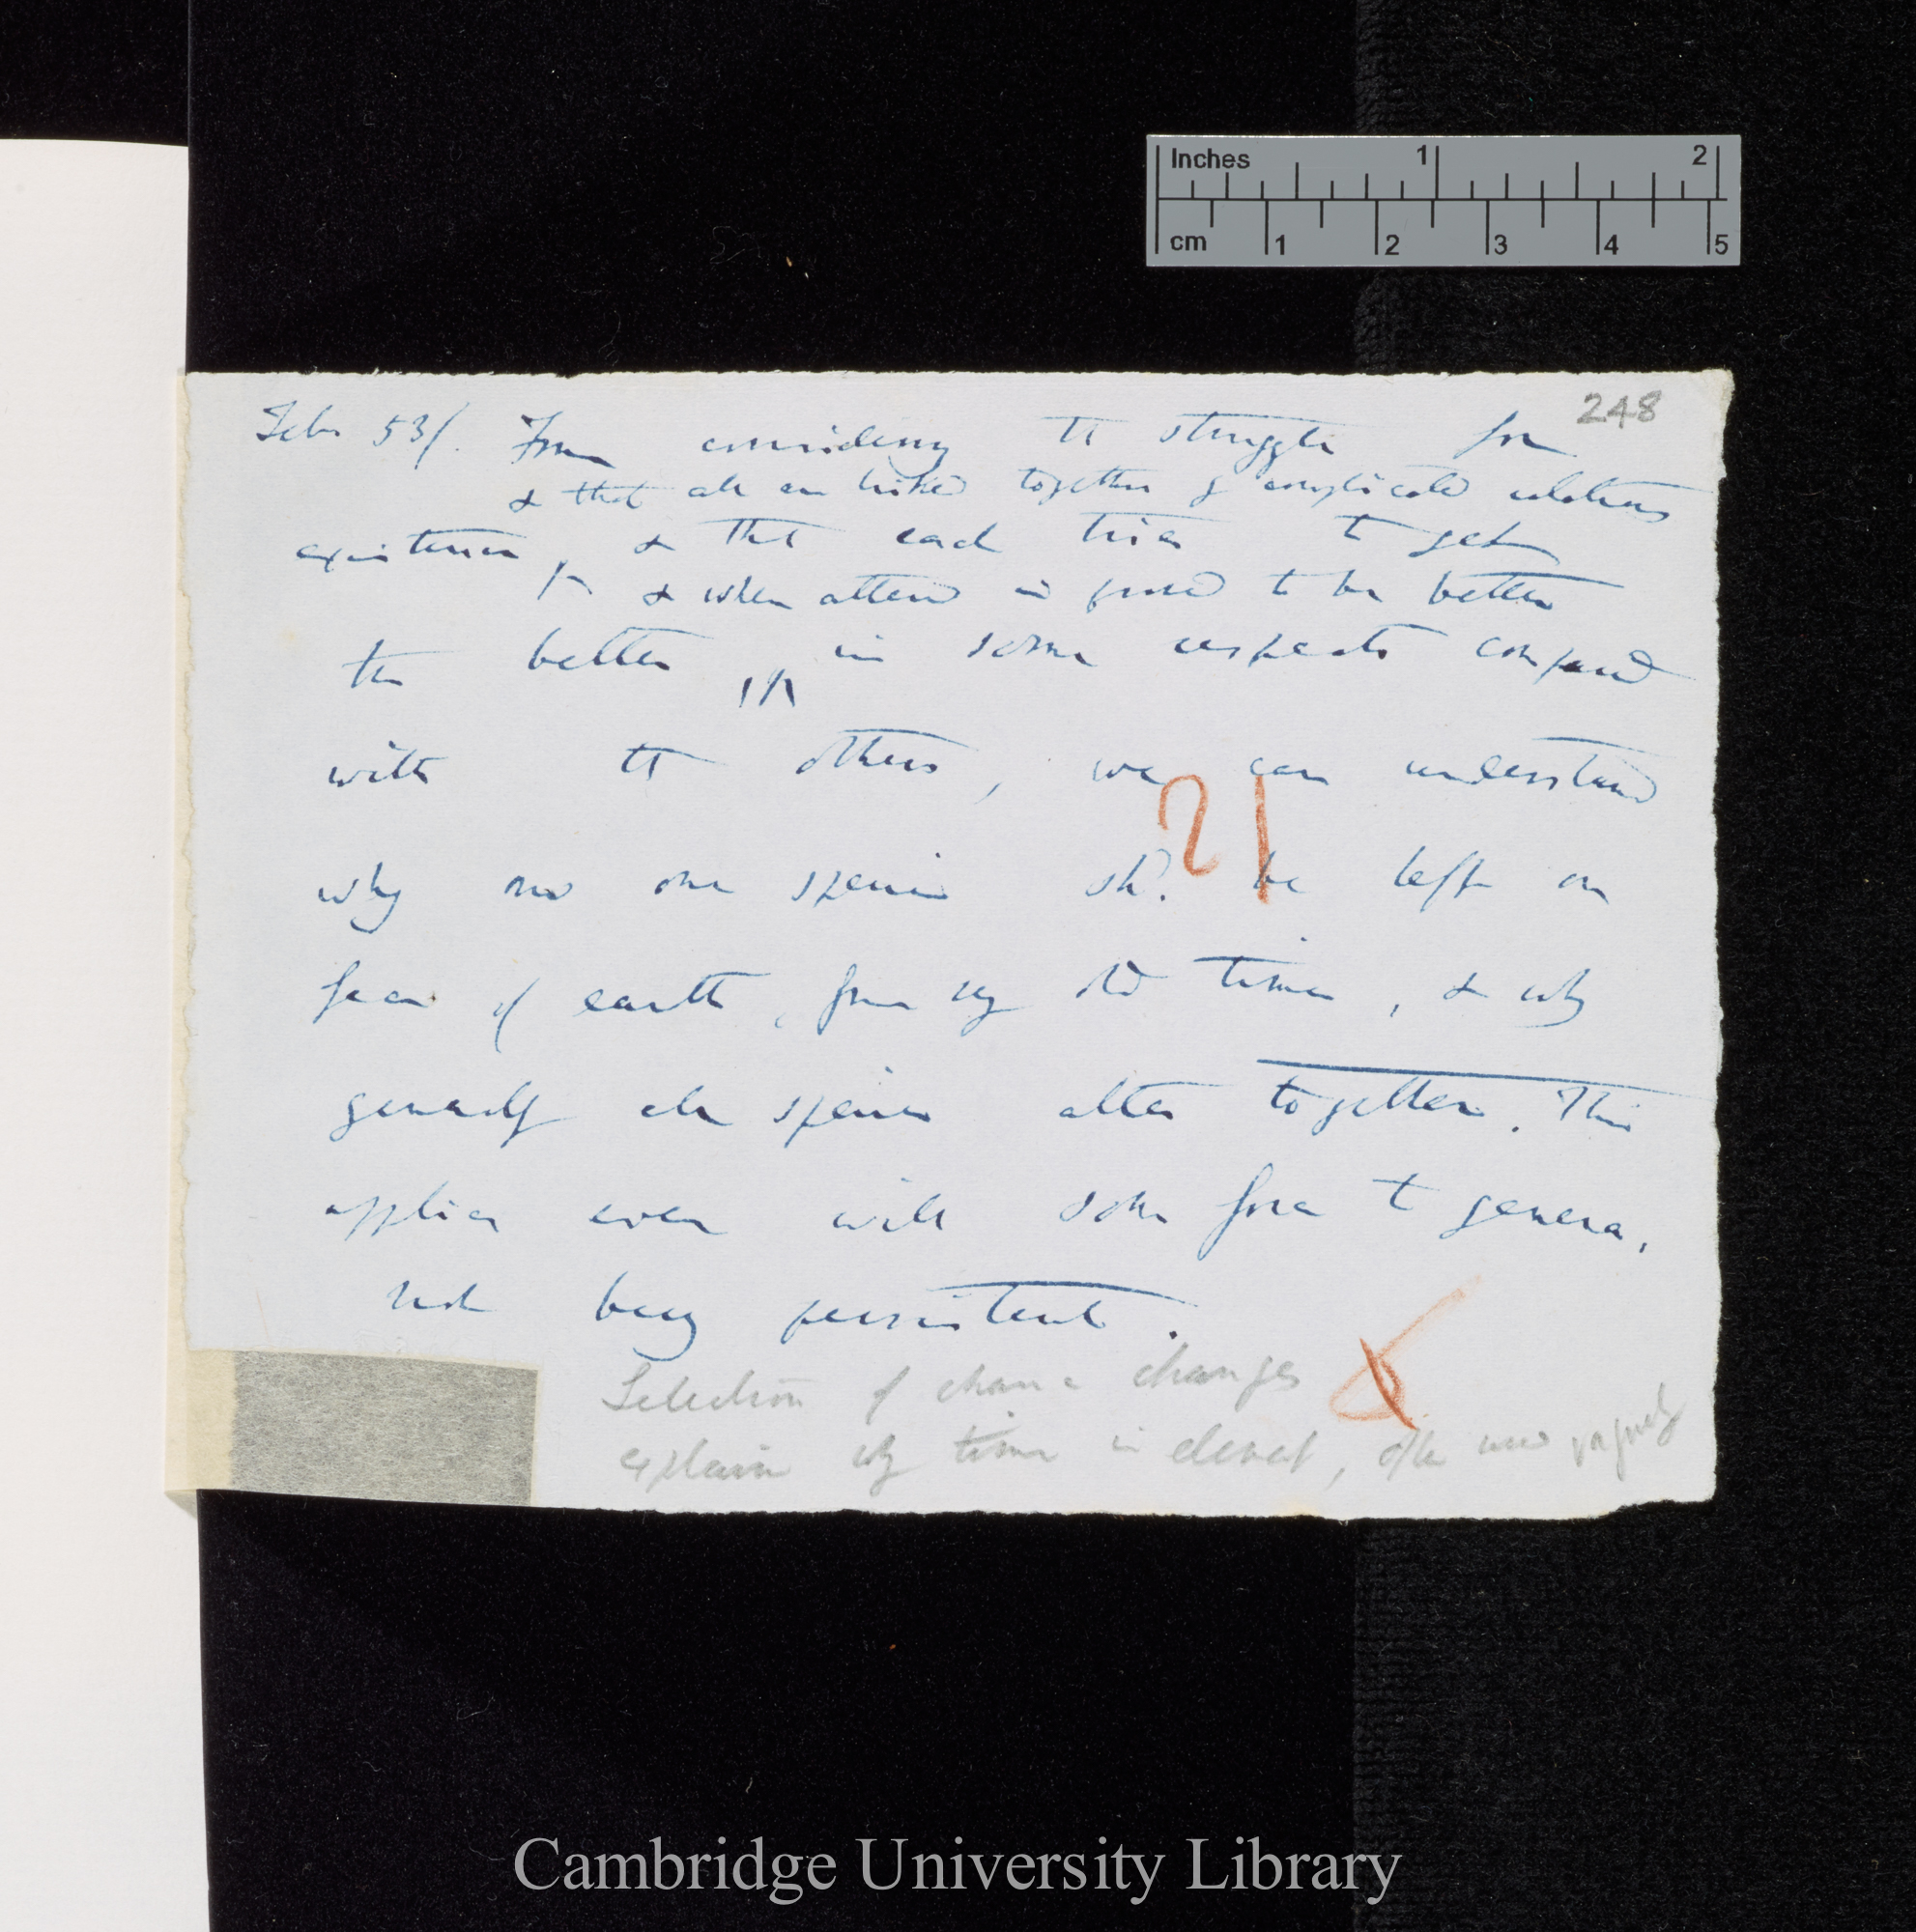 Inches 1 2
cm 1 2 3 4 5
248
Feb. 53/. From considering the struggle for
& that all are linked together by complicated relations
existence, & that each tries to get
& when altered is found to be better
the better, in some respects compared
with the others, we can understand
21
why no one species shd. be left on
face of earth, from very old times, & why
generally all species alter together. This
applies even with some force to genera,
not being persistent.
Selection of chance changes
explains why time is element, often used vaguely
Cambridge University Library